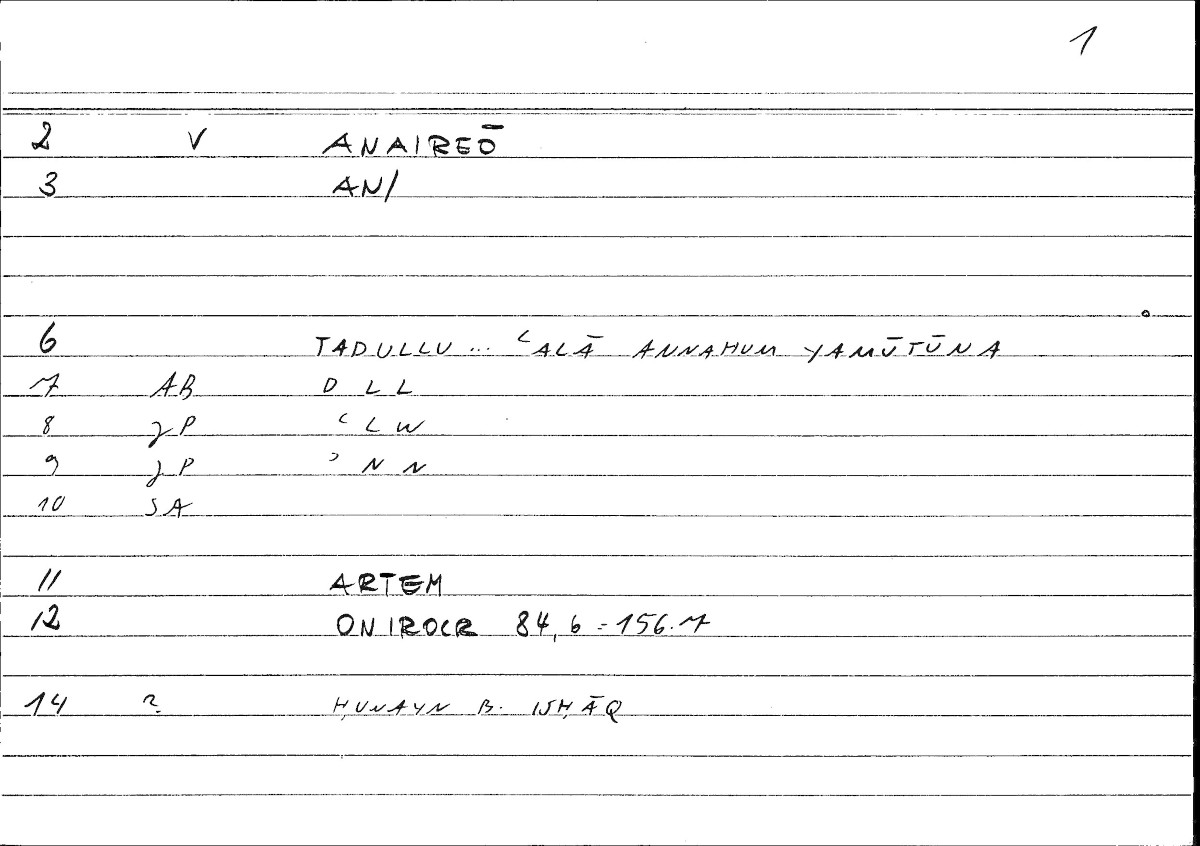 1
2 V ANAIREŌ
3 AN/
6 TADULLU ... ʿALĀ ANNAHUM YAMŪTŪNA
7 AB D L L
8 ʿ L W
9 ʾ N N
10 SA
11 ARTEM
12 ONIROCR 84, 6 = 156.7
14 ? ḤUNAYN B. ISḤĀQ